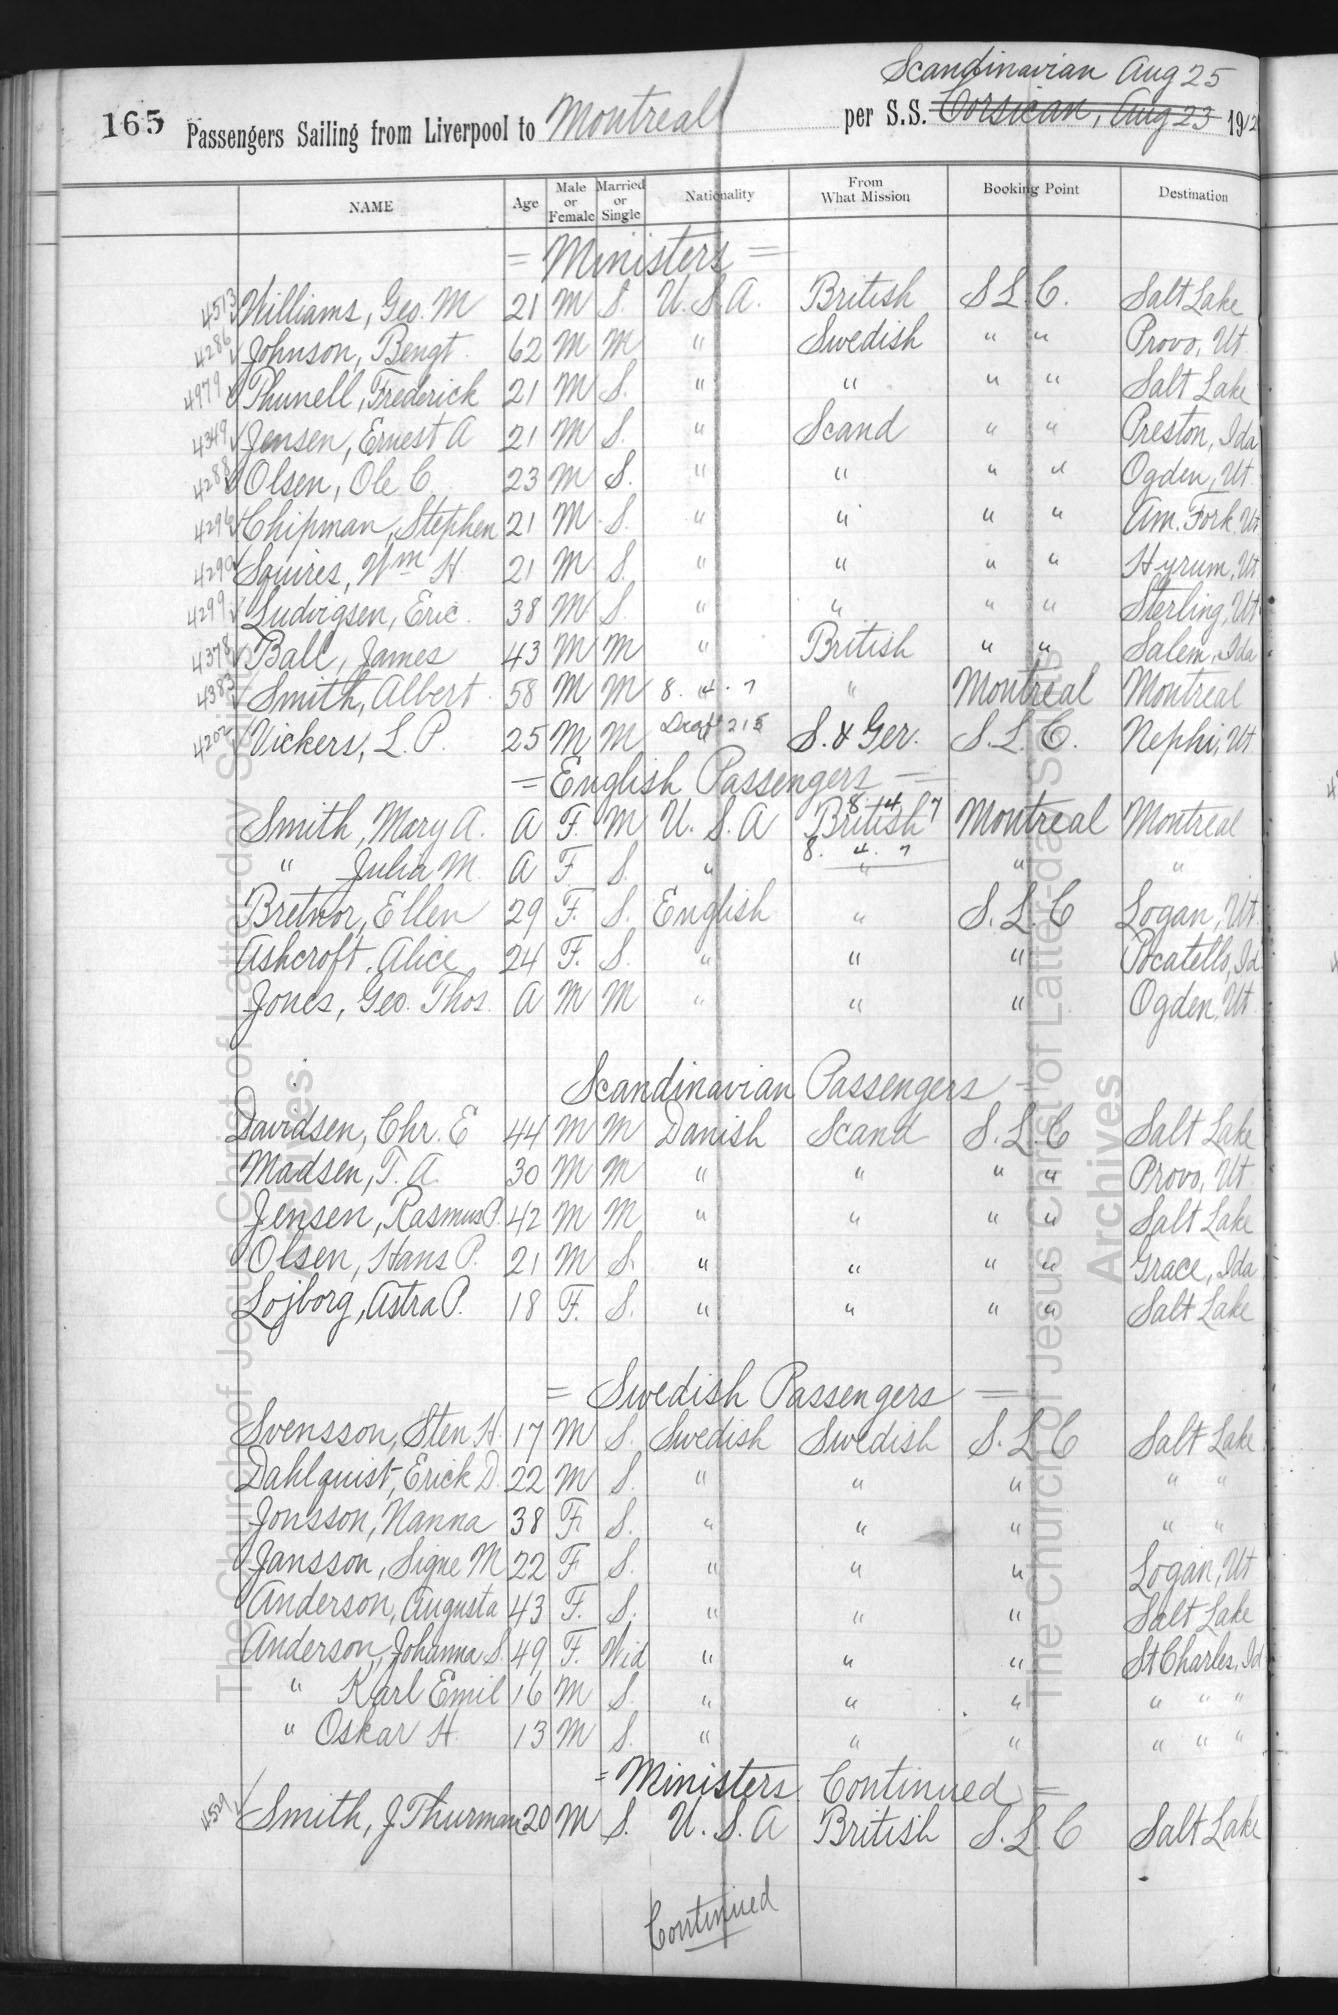 Scandinavian Aug 25
165 Passengers Sailing from Liverpool to Montreal per S.S. Corsican, Aug 23 1912
NAME Age Male or Female Married or Single Nationality From What Mission Booking Point Destination
= Ministers =
4513 Williams, Geo. M 21 M S. U.S.A. British S L. C. Salt Lake
4286 Johnson, Bengt. 62 M M " Swedish " " Provo, Ut.
4979 Phunell, Frederick 21 M S. " " " " Salt Lake
4349 Jensen, Ernest A 21 M S. " Scand " " Preston, Ida
4288 Olsen, Ole C. 23 M S. " " " " Ogden, Ut.
4296 Chipman, Stephen 21 M S. " " " " Am. Fork. Ut
4290 Squires, Wm H. 21 M S. " " " " Hyrum, Ut
4299 Ludvigsen, Eric. 38 M S. " " " " Sterling, Ut
4378 Ball, James 43 M M " British " " Salem, Ida
4383 Smith, Albert. 58 M M 8. 4. 7 " Montreal Montreal
4202 Vickers, L. P. 25 M M Draft 215 " S. & Ger. S. L. C. Nephi, Ut
= English Passengers =
Smith, Mary A. A F. M U. S. A British 8 4 7 Montreal Montreal
" Julia M. A F S. " 8. 4. 7 " " "
Bretnor, Ellen 29 F. S. English " S. L. C Logan, Ut.
Ashcroft, Alice 24 F. S. " " " Pocatello, Id
Jones, Geo. Thos. A M M " " " Ogden, Ut.
Scandinavian Passengers =
Davidsen, Chr. E 44 M M Danish Scand S. L. C Salt Lake
Madsen, T. A. 30 M M " " " " Provo, Ut.
Jensen, Rasmus P. 42 M M " " " " Salt Lake
Olsen, Hans P. 21 M S. " " " " Grace, Ida
Lojborg, Astra P. 18 F. S. " " " " Salt Lake
= Swedish Passengers =
Svensson, Sten H. 17 M S. Swedish Swedish S. L C Salt Lake
Dahlquist, Erick D. 22 M S. " " " " "
Jonsson, Nanna 38 F. S. " " " " "
Jansson, Signe M 22 F S. " " " Logan, Ut
Anderson, Augusta 43 F. S. " " " Salt Lake
Anderson, Johanna S. 49 F. Wid " " " St Charles, Id
" Karl Emil 16 M S. " " " " " "
" Oskar H. 13 M S. " " " " " "
= Ministers Continued =
4529 Smith, J. Thurman 20 M S. U. S. A British S. L. C Salt Lake
Continued
The Church of Jesus Christ of Latter-day Saints
Archives
The Church of Jesus Christ of Latter-day Saints
Archives